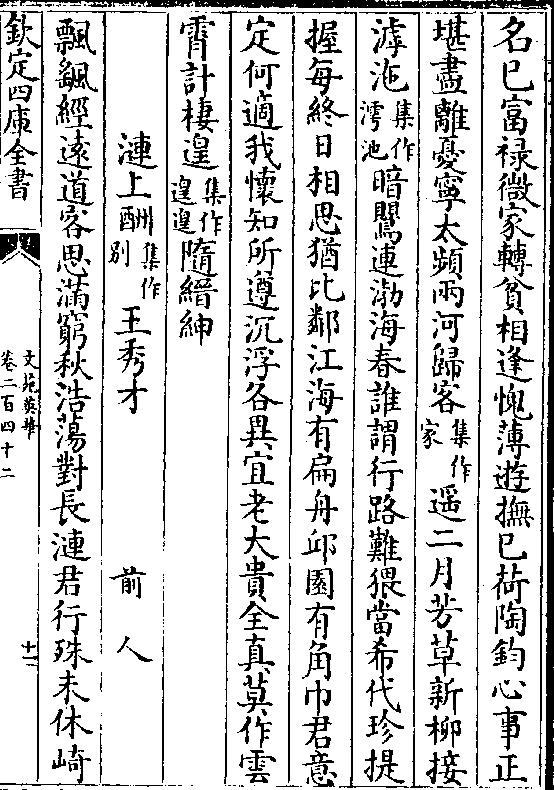 名已富禄微家轉貧相逢愧薄遊撫已荷陶鈞心事正
堪盡離憂寧太頻兩河歸客集作家遥二月芳草新柳接
滹沲集作滹池暗鶯連渤海春誰謂行路難猥當希代珍提
握每終日相思猶比鄰江海有扁舟邱園有角巾君意
定何適我懐知所遵沉浮各異宜老大貴全真莫作雲
霄計棲遑集作遑遑隨縉紳
漣上酬集作别王秀才 前人
飄飖經逺道客思滿窮秋浩蕩對長漣君行殊未休崎
欽定四庫全書
文苑英華
卷二百四十二
十一